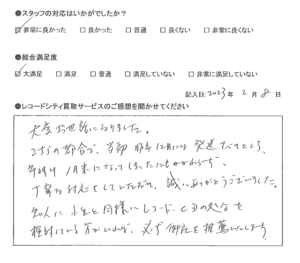 ●スタッフの対応はいかがでしたか？
☑ 非常に良かった □ 良かった □ 普通 □ 良くない □ 非常に良くない
●総合満足度
☑ 大満足 □ 満足 □ 普通 □ 満足していない □ 非常に満足していない
記入日: 2023 年 2 月 8 日
●レコードシティ買取サービスのご感想を聞かせてください
大変お世話になりました。
こちらの都合で、当初 昨年12月には 発送すべきところ、
年明け 1月末になってしまったにもかかわらず、
丁寧な対応をしていただき、誠にありがとうございました。
知人に小生と同様にレコード、CDの処分を
検討している方がいれば、必ず御社を推薦いたします